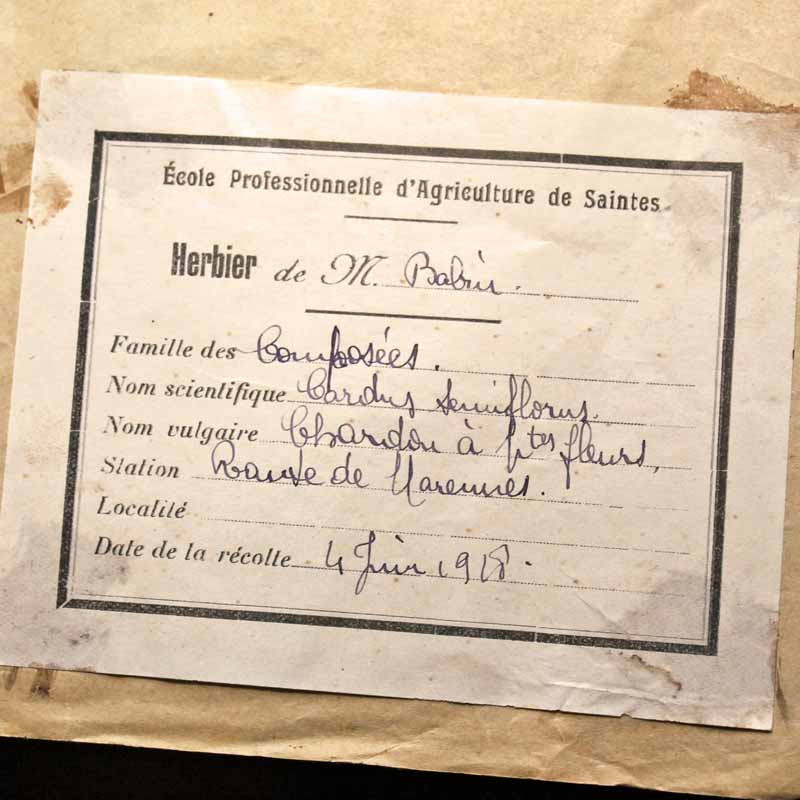 École Professionnelle d'Agriculture de Saintes
Herbier de M. Babin.
Famille des Composées.
Nom scientifique Carduus
Nom vulgaire Chardon à ptes fleurs,
Station Route de Marennes.
Localité
Date de la récolte 4 Juin 1918.